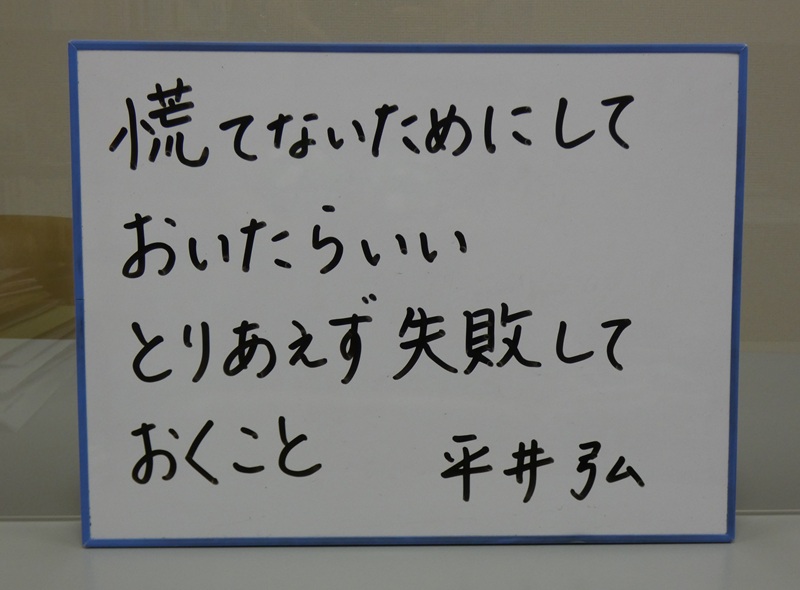 慌てないためにして
おいたらいい
とりあえず失敗して
おくこと　平井 弘